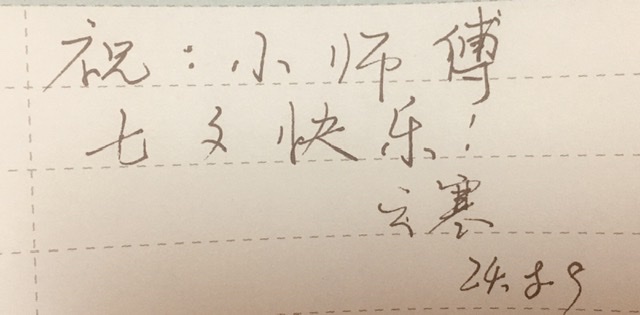 祝：小师傅
七夕快乐！
云寒
24.8.9